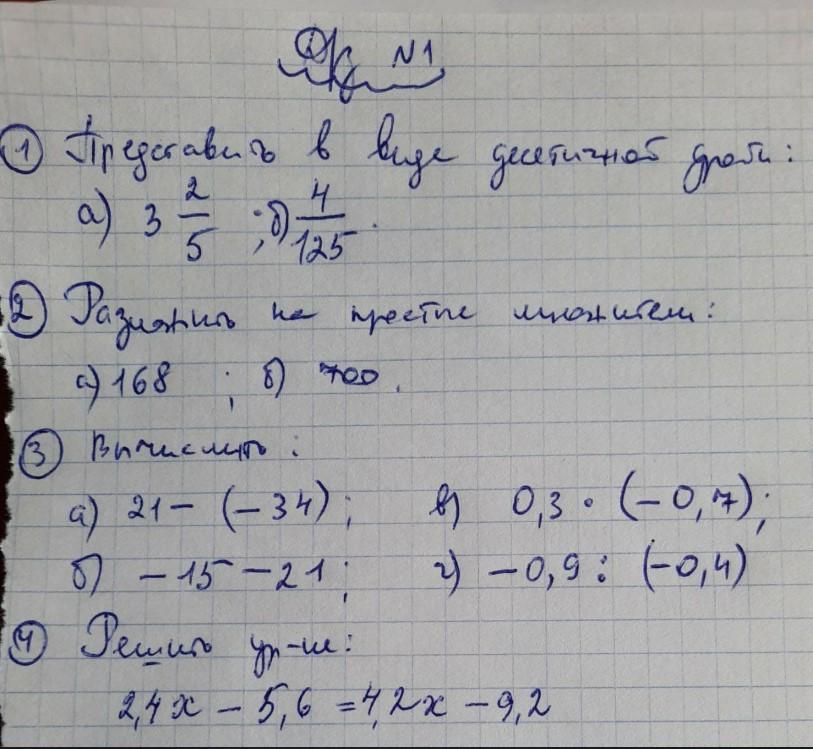 ДР №1
① Представить в виде десятичной дроби:
а) 3 2/5 ; б) 4/125.
② Разложить на простые множители:
а) 168 ; б) 700.
③ Вычислить:
а) 21 - (-34); в) 0,3 · (-0,7);
б) -15 - 21; г) -0,9 : (-0,4)
④ Решить ур-ие:
2,4x - 5,6 = 4,2x - 9,2